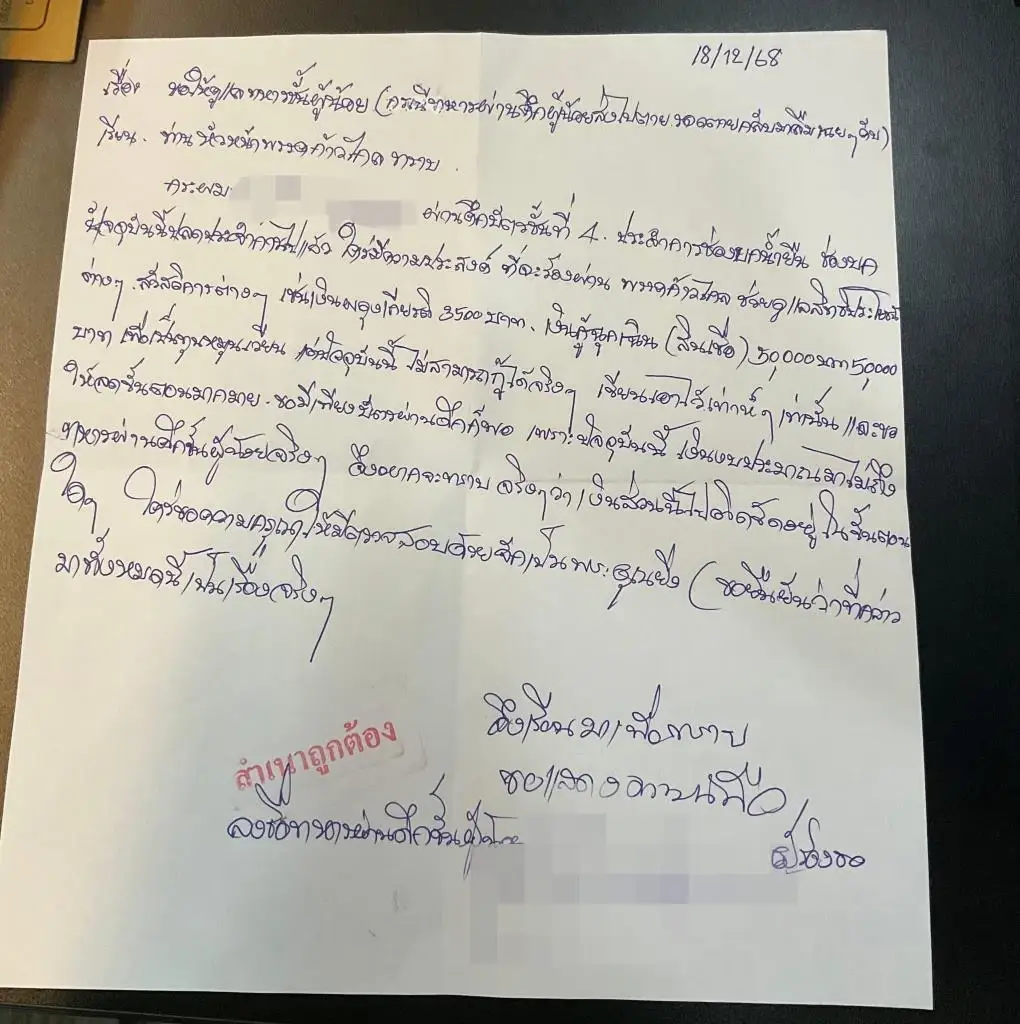 18/12/68
เรื่อง ขอให้ดูแลทหารชั้นผู้น้อย (กรณีทหารผ่านศึกผู้น้อยส่งไปตาย รอดตายกลับมาลืม
เรียน. ท่านหัวหน้าพรรคก้าวไกล ทราบ.
กระผม
ผ่านศึกบัตรชั้นที่ 4. ประจำการช่องบกน้ำยืน ช่องบก
ปัจจุบันนี้ปลดประจำการไปแล้ว ใคร่มีความประสงค์ ที่จะร้องผ่าน พรรคก้าวไกล ช่วยดูแลสิทธิประโยชน์
ต่างๆ. สวัสดิการต่างๆ เช่นเงินผดุงเกียรติ 3500 บาท. เงินกู้ฉุกเฉิน (สินเชื่อ) 50,000 บาท 50,000
บาท เพื่อเป็นทุนหมุนเวียน แต่ปัจจุบันนี้ ไม่สามารถกู้ได้จริงๆ เขียนเอาไว้เท่ห์ๆ เท่านั้น และขอ
ให้ลดขั้นตอนมากมาย. ขอมีเพียงบัตรผ่านศึกก็พอ เพราะปัจจุบันนี้ เงินงบประมาณมาไม่ถึง
ทหารผ่านศึกชั้นผู้น้อยจริงๆ จึงอยากจะทราบ จริงๆว่า เงินส่วนนี้ไปติดขัดอยู่ ในขั้นตอน
ใดๆ ใคร่ขอความกรุณา ให้มีตรวจสอบด้วยจักเป็นพระคุณยิ่ง (ขอยืนยันว่าที่กล่าว
มาทั้งหมดนี้ เป็นเรื่องจริงๆ
จึงเรียนมาเพื่อทราบ
ขอแสดงความนับถือ
สำเนาถูกต้อง
ลงชื่อทหารผ่านศึกชั้นผู้น้อย
ผู้ร้องขอ